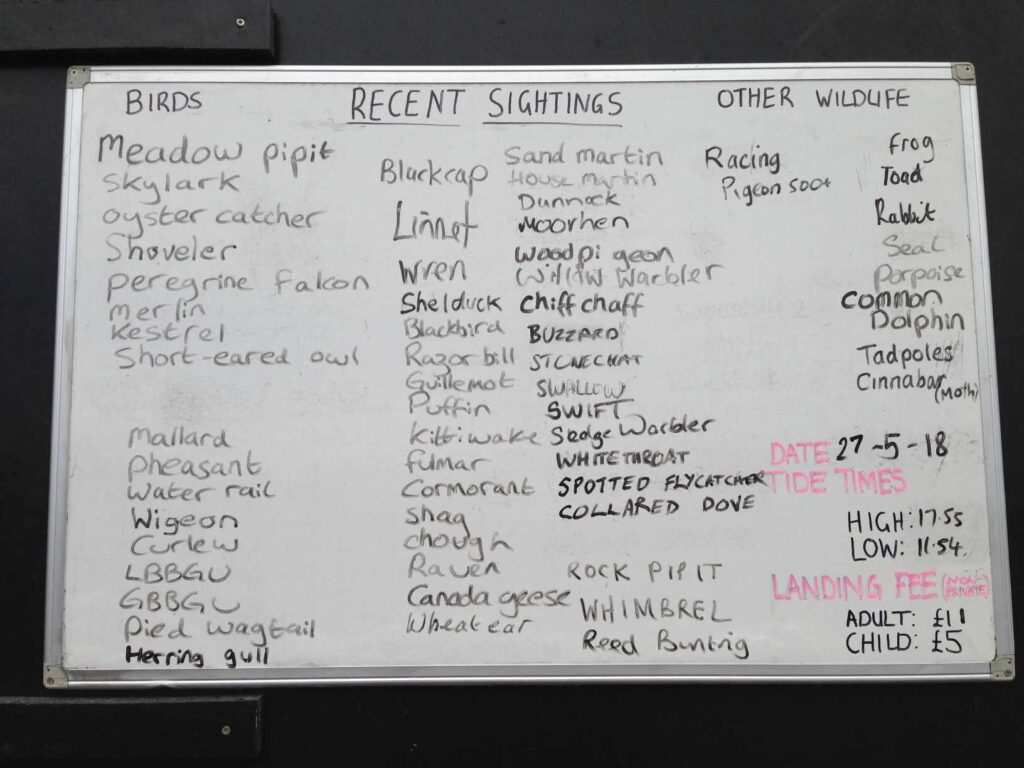 BIRDS
RECENT SIGHTINGS
OTHER WILDLIFE
Meadow pipit
Skylark
oyster catcher
Shoveler
peregrine falcon
merlin
kestrel
Short-eared owl
Mallard
pheasant
Water rail
Wigeon
Curlew
LBBGU
GBBGU
Pied wagtail
Herring gull
Blackcap
Linnet
Wren
Shelduck
Blackbird
Razorbill
Guillemot
Puffin
kittiwake
fulmar
Cormorant
shag
chough
Raven
Canada geese
Wheatear
Sand martin
House martin
Dunnock
Moorhen
Woodpigeon
Willow Warbler
Chiff chaff
BUZZARD
STONECHAT
SWALLOW
SWIFT
Sedge Warbler
WHITETHROAT
SPOTTED FLYCATCHER
COLLARED DOVE
ROCK PIPIT
WHIMBREL
Reed Buntig
Racing
Pigeon 500+
frog
Toad
Rabbit
Seal
Porpoise
Common
Dolphin
Tadpoles
Cinnabar (Moth)
DATE 27-5-18
TIDE TIMES
HIGH: 17.55
LOW: 11.54
LANDING FEE (NON-PRIVATE)
ADULT: £11
CHILD: £5